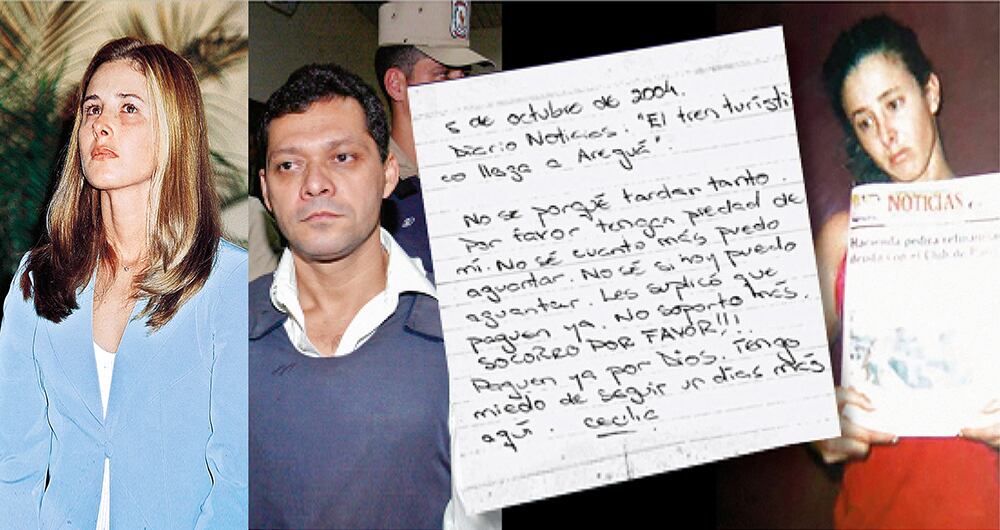 5 de octubre de 2004.
Diario Noticias: "El tren turísti
co llega a Areguá".
No se porqué tardan tanto.
por favor tengan piedad de
mi. No sé cuanto más puedo
aguantar. No sé si hoy puedo
aguantar. Les suplicó que
paguen ya. No soporto más.
SOCORRO POR FAVOR!!!
Paguen ya por Dios. Tengo
miedo de seguir un dias más
aquí. Cecilia
NOTICIAS
Hacienda pedirá refinanciar
deuda con el Club de París